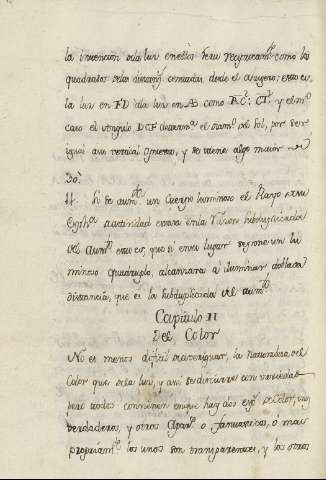 la intencion dela luz en ellos seràn reciprocam.te como los
quadrados delas distan.s contadas desde el agugero; esto es,
la luz en FD àla luz en AB como
caso el angulo DCF del Sol, por ser
igual a su vertical opuesto, y se viene algo maior
30.
Si se aum.ta un Cuerpo luminoso el Rayo de su
actividad estará en la razon subduplicada
del aum.to esto es, que si en su lugar se pone un lu
minoso quadruplo, alcanzara à iluminar doblada
distancia, que es la subduplicada del aum.to
Capitulo II
Del Color
No es menos dificil de averiguar, la Naturaleza del
Color que dela luz, y aunq se discurre con variedad
todos convienen en que hay dos de Color, unos
verdaderos, y otros Apar.s o fantasticos, ò mas
propriam.te los unos son transparentes, y los otros